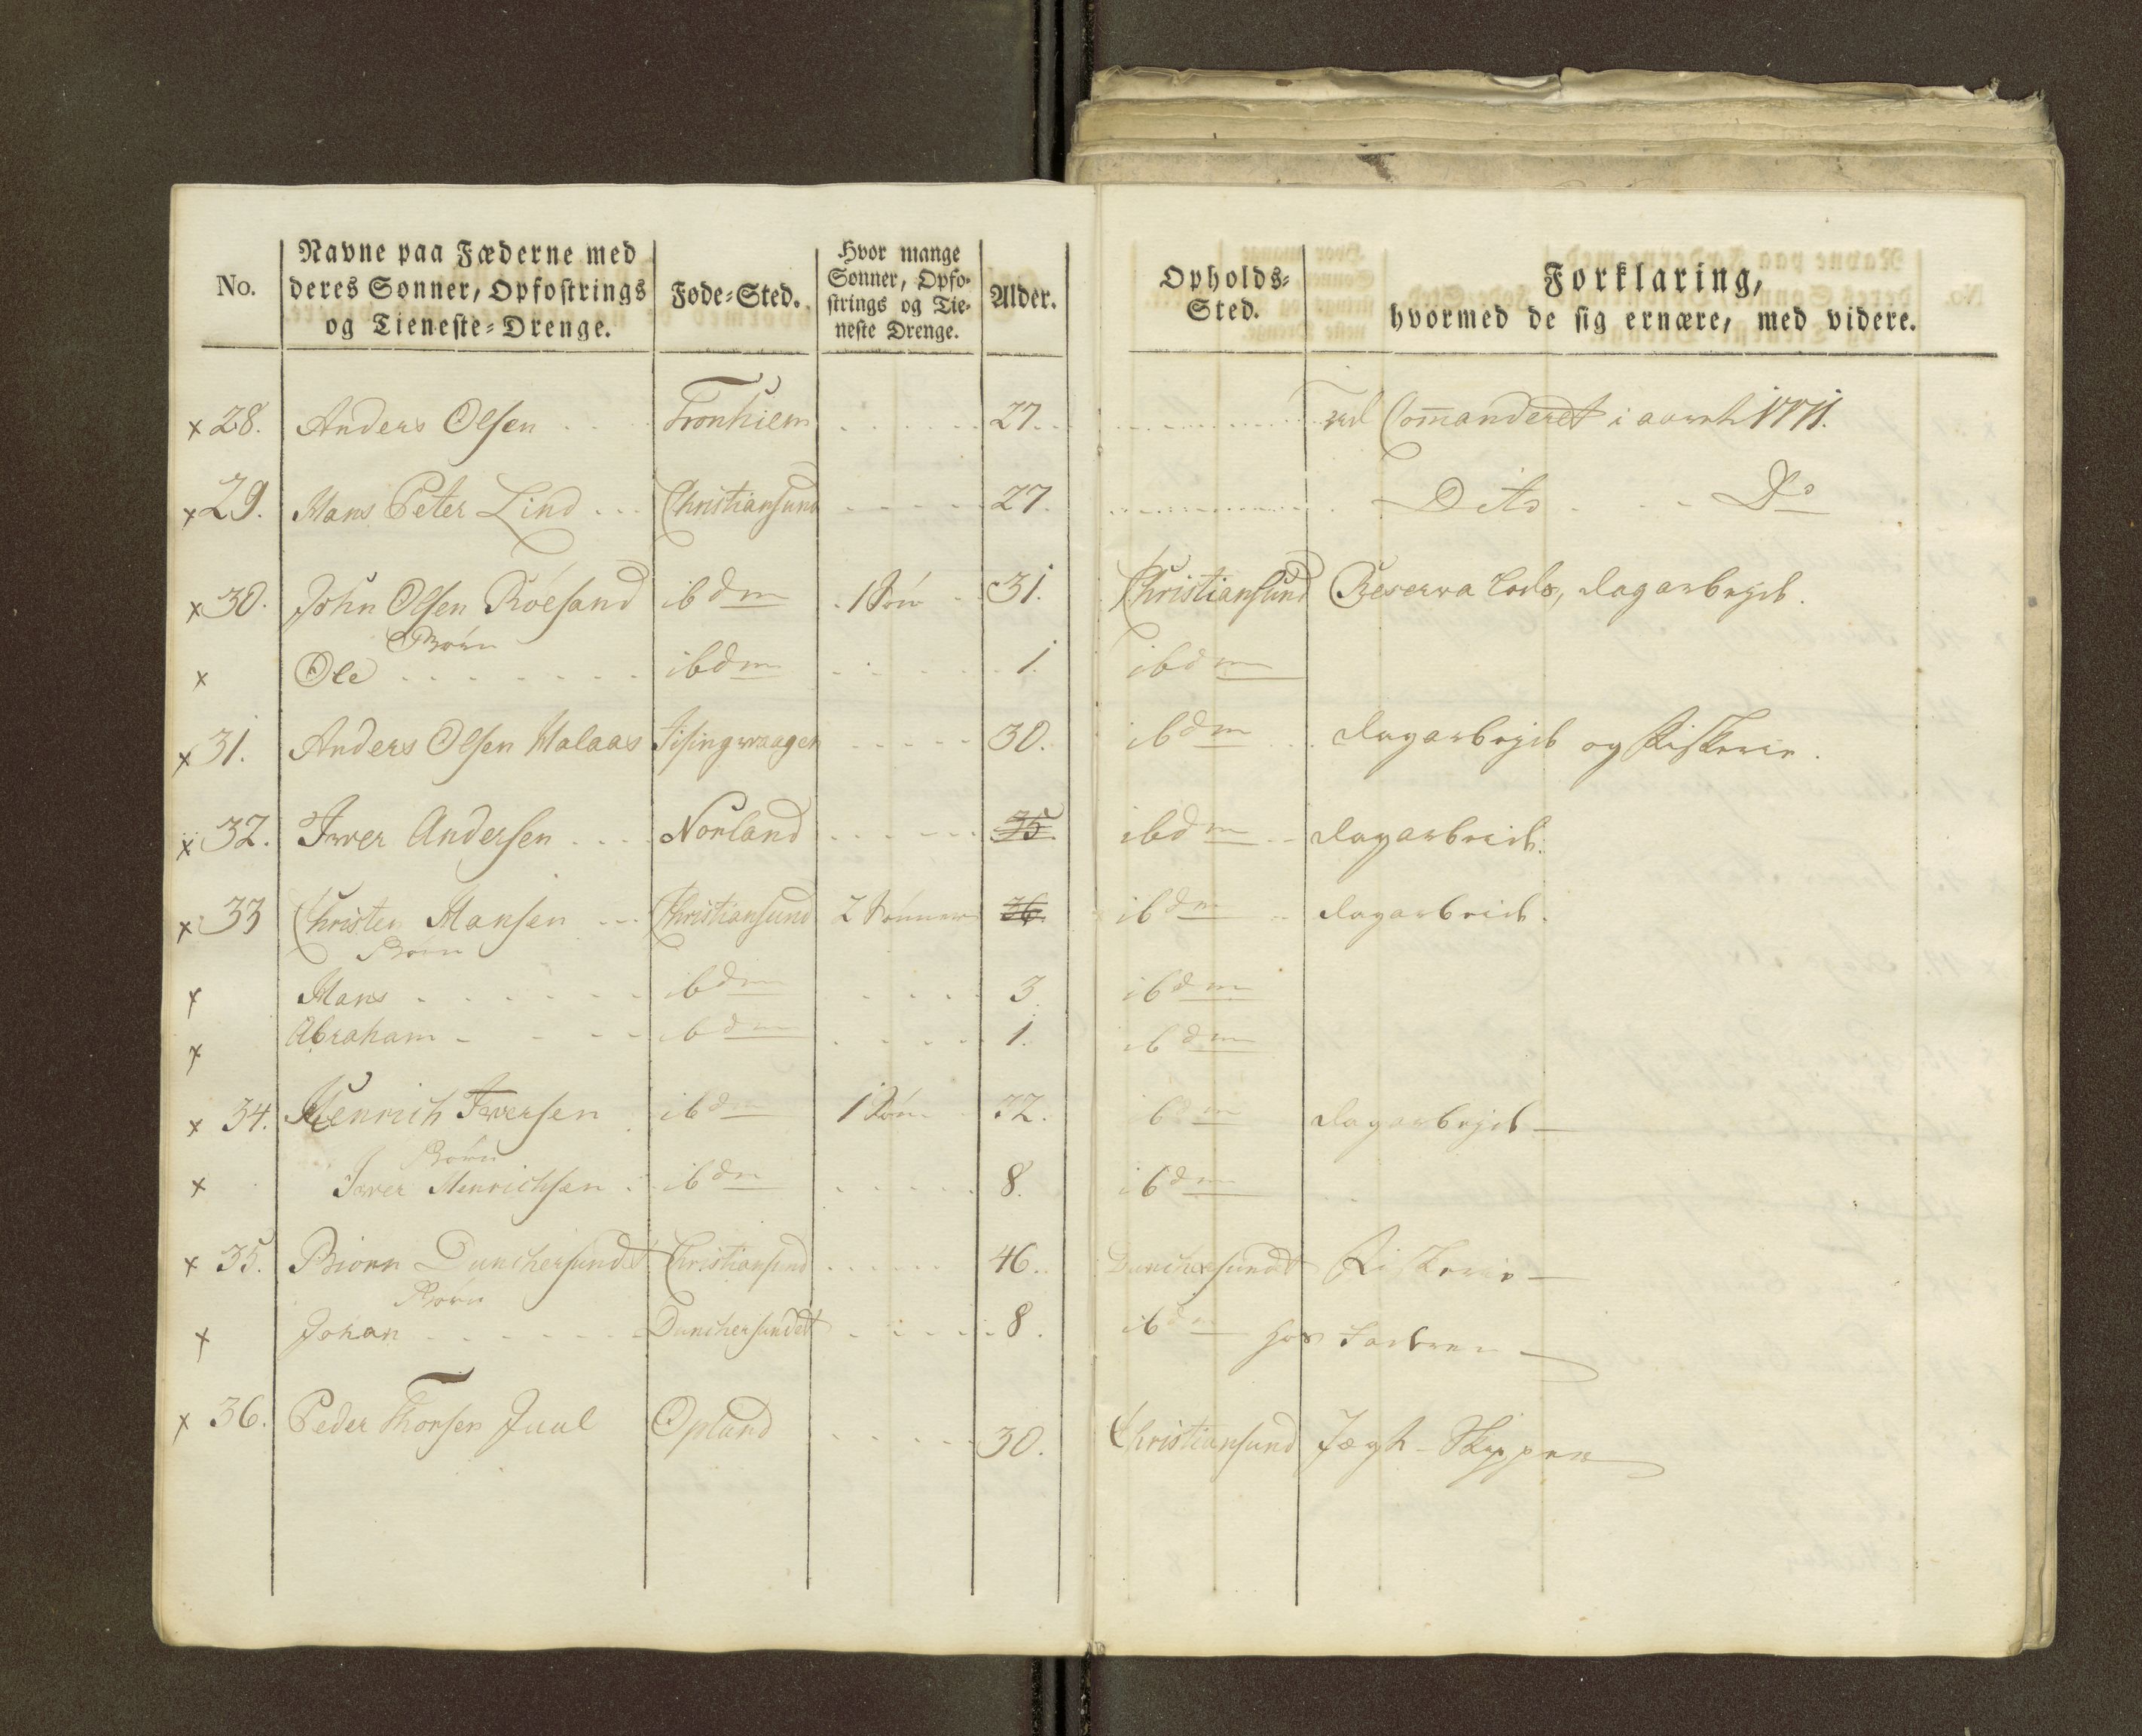 No.
Navne paa Fæderne med
deres Sønner, Opfostrings
og Tieneste=Drenge.
Føde=Sted.
Hvor mange
Sønner, Opfo=
strings og Tie=
neste Drenge.
Alder.
Opholds=
Sted.
Forklaring,
hvormed de sig ernære, med videre.
x 28. Anders Olsen Tronhiem 27. Commanderet i aaret 1771.
x 29. Hans Peter Lind Christiansund 27. Dito Do
x 30. John Olsen Röesand ibdm 1 Sön 31. Christiansund Reserva Lods, dagarbejd.
Börn
x Ole ibdm 1. ibdm
x 31. Anders Olsen Halaas 30. ibdm dagarbejd og Fiskerie.
x 32. Iwer Andersen Norland 35. ibdm dagarbeid.
x 33 Christen Hansen Christiansund 2 Sönner 36. ibdm dagarbeid.
Börn
x Hans ibdm 3. ibdm
x Abraham ibdm 1. ibdm
x 34. Henrich Iwersen ibdm 1 Sön 32. ibdm dagarbejd
Börn
x Iwer Henrichsen ibdm 8. ibdm
x 35. Biörn Dunchersundet Christiansund 46. Dunchersundet Fiskerie
Börn
x Johan Dunchersundet 8. ibdm hos Faderen
x 36. Peder Thorsen Juul Opland 30. Christiansund Jægt-Skipper